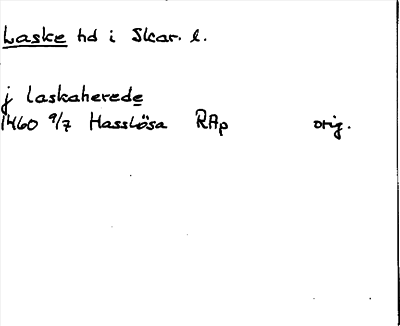 Laske hd i Skar. l.
j laskaherede
1460 9/7 Hasslösa RAp orig.